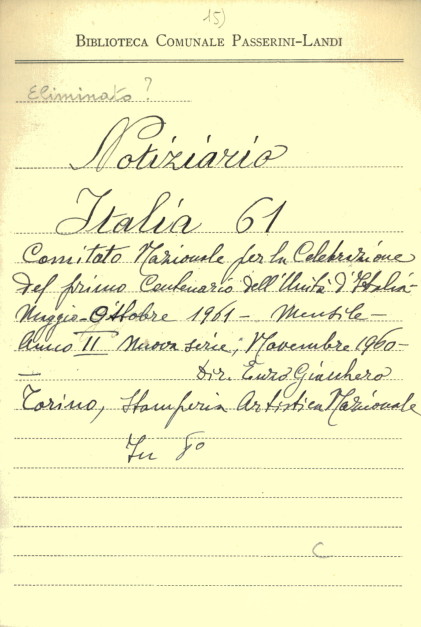 15)
BIBLIOTECA COMUNALE PASSERINI-LANDI
Eliminato ?
Notiziario
Italia 61
Comitato Nazionale per la Celebrazione
del primo Centenario dell'Unità d'Italia-
Maggio-Ottobre 1961 - Mensile -
Anno II Nuova serie; Novembre 1960 -
— Dir. Enzo Giachero
Torino, Stamperia Artistica Nazionale
In 8°
C